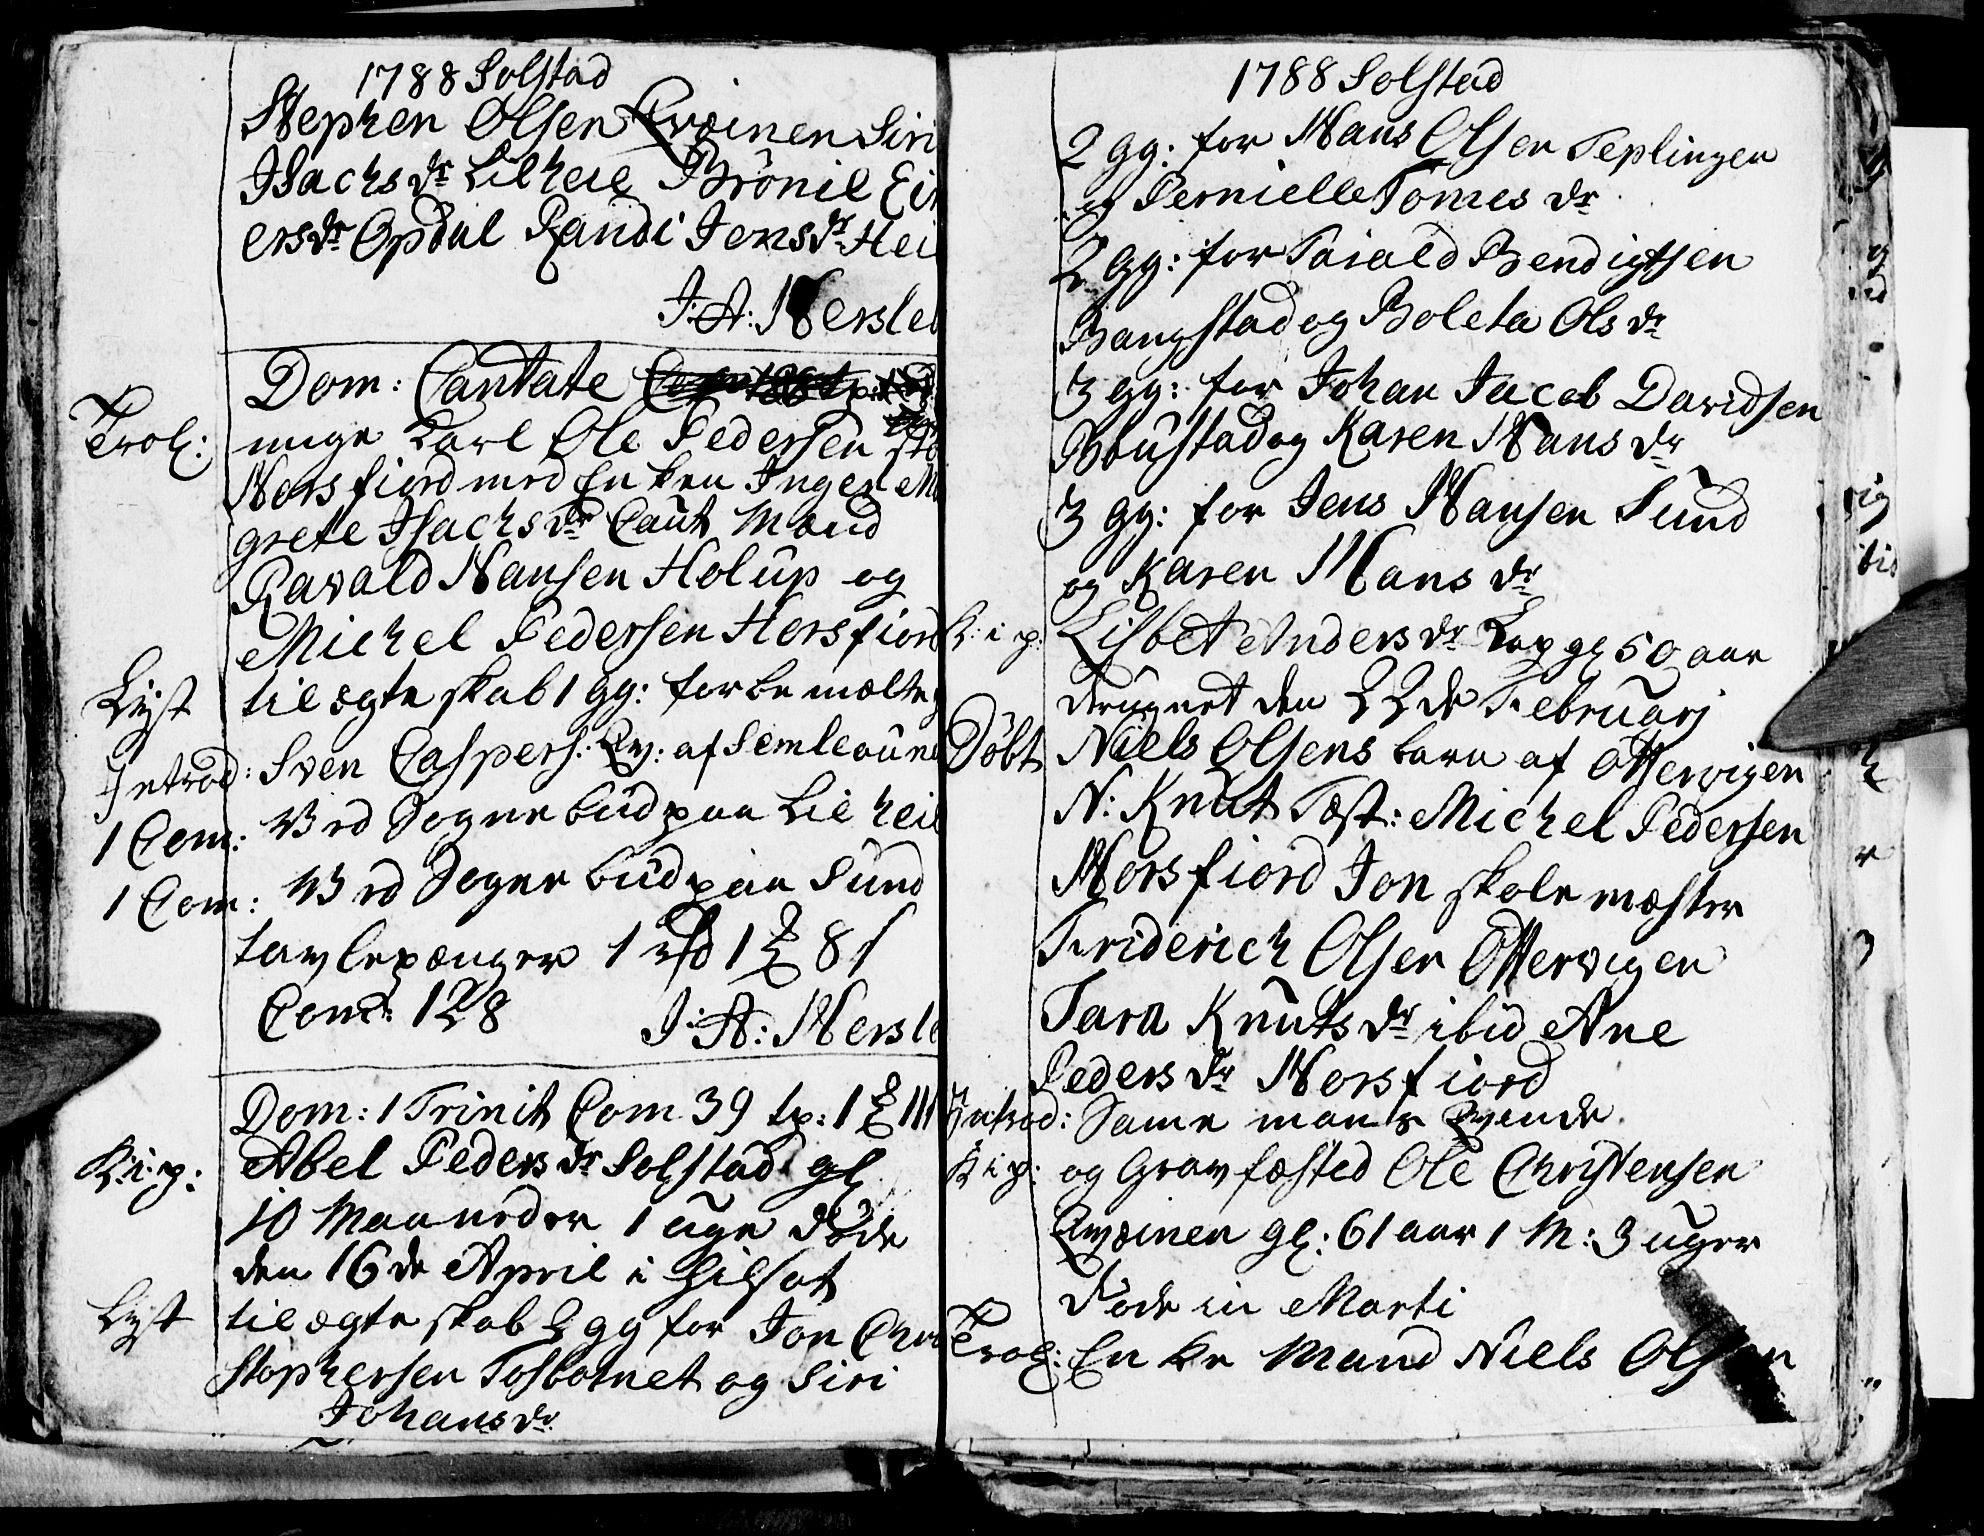 1788 Solstad
Stephen Olsen Qvæinen Siri
Isachs dr Lilheie Brönil Ei
ersdr Opdal Randi Jens dr Hei
J: A: Hersle
Dom: Cantate
Trol: unge Karl Ole Pedersen
Horsfiord med Enken Inger M
grete Isachs dr Caut Mænd
Ravald Hansen Holup og
Michel Pedersen Horsfiord
Lyst til ægteskab 1 gg: for be mælte
Introd: Sven Caspers: Qv: af Semleoune
1 Com: Ved Sognebud paa Lilheie
1 Com: Ved Sognebud paa Sund
tavlepænger 1 rd 1 8 s
Com: 128
J: A: Hersle
Dom: 1 Trinit Com 39 tp: 1
K: i: p: Abel Peders dr Solstad gl
10 Maaneder 1 uge døde
den 16de April i
Lyst til ægteskab 2 gg for Jon Chri
stophersen Tosbotnet og Siri
Johans dr
1788 Solstad
2 gg: for Hans Olsen Teplingen
og Pernielle Tomes dr
2 gg: for Taiald Bendigtsen
Bangstad og Boleta Ols dr
3 gg: for Johan Jacob Davidsen
Bøustad og Karen Hans dr
3 gg: for Jens Hansen Sund
og Karen Hans dr
K: i p: Lisbet Anders dr Lap gl 50 aar
drugnet den 22de Februarj
Döbt Niels Olsens barn af Ottervigen
N: Knut Test: Michel Pedersen
Horsfiord Jon skolemæster
Friderich Olsen Ottervigen
Tara Knuts dr ibid Ane
Peders dr Horsfiord
Introd: Same mands Qvinde
K i p: og Gravfæsted Ole Christensen
Qvæinen gl: 61 aar 1 M: 3 uger
døde in Marti
Trol: Enke Mand Niels Olsen